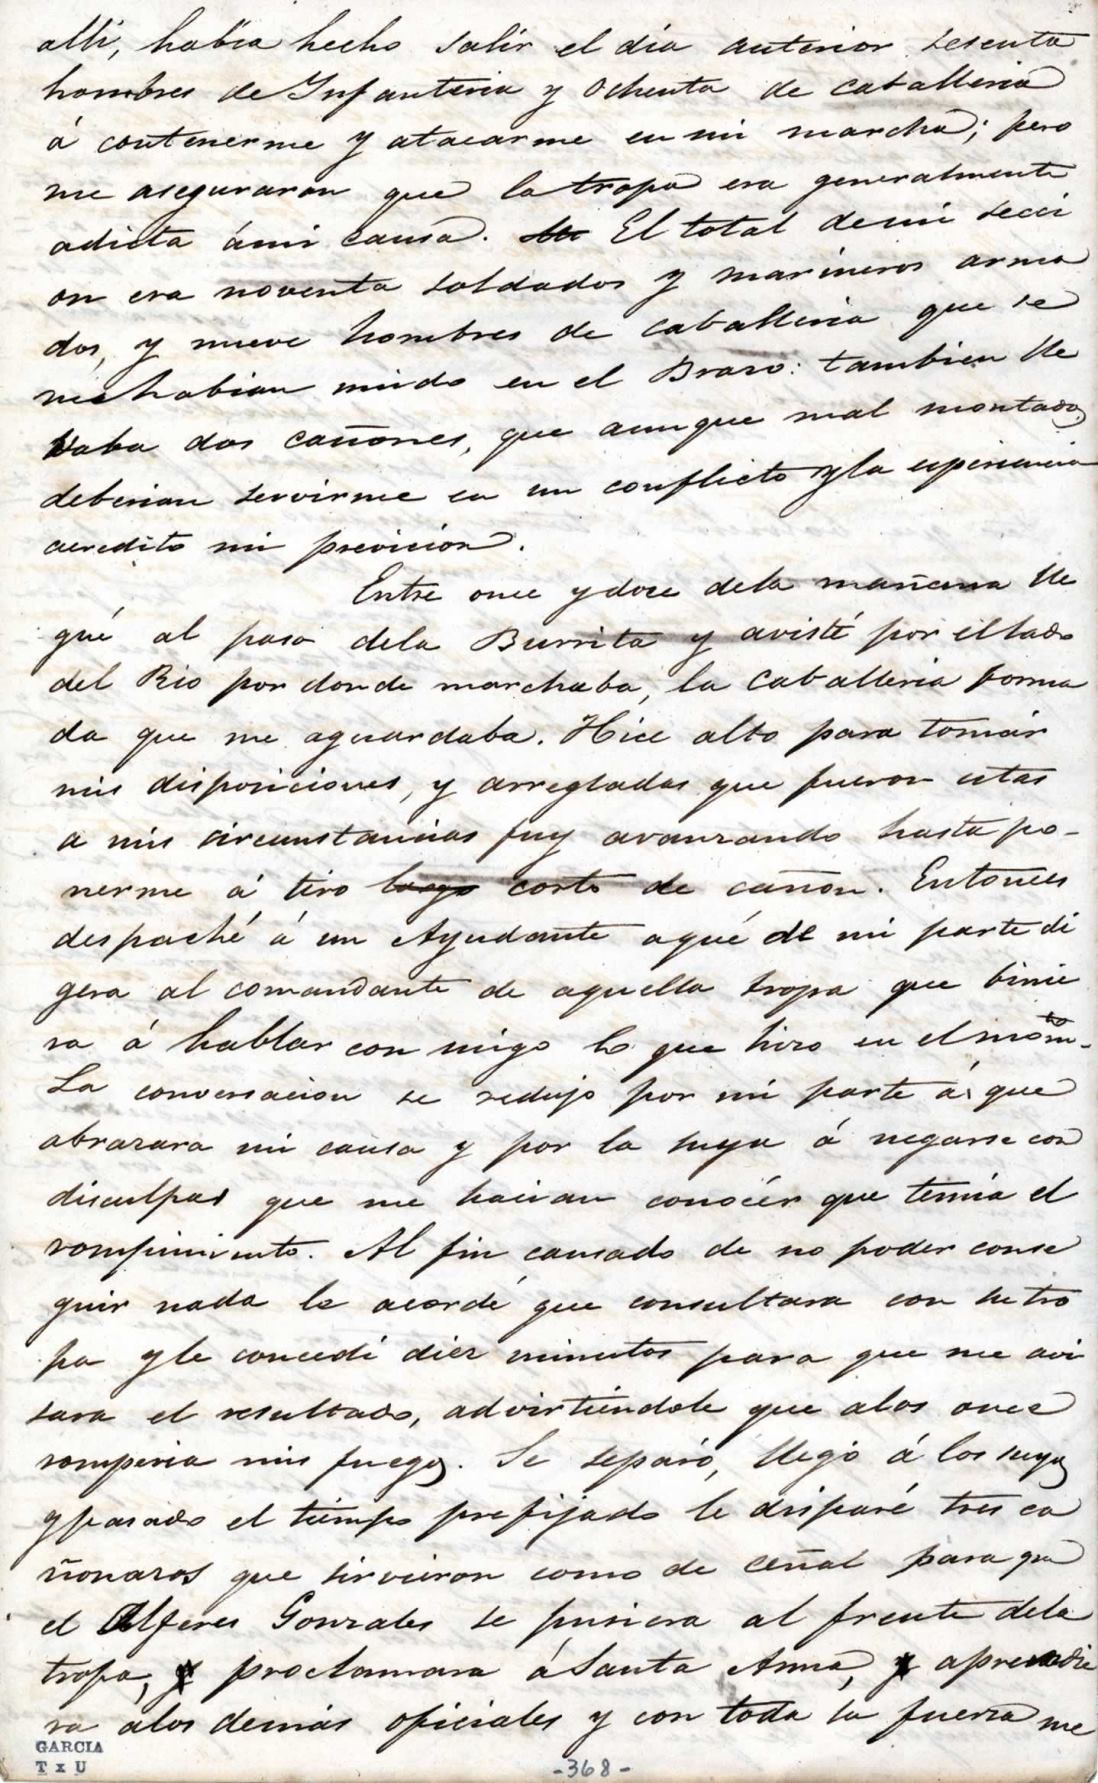 alli, habia hecho salir el dia anterior sesenta
hombres de Infanteria y Ochenta de caballeria
á contenerme y atacarme en mi marcha; pero
me aseguraron que la tropa era generalmente
adicta ámi causa. El total demi secci
on era noventa soldados y marineros arma
dos, y nueve hombres de caballeria que se
me habian unido en el Braso: tambien lle
vaba dos cañones, que aunque mal montados
deberian servirme en un conflicto y la esperiencia
acreditó mi previcion.
Entre once y doce dela mañana lle
gué al paso dela Burrita y avisté por el lado
del Rio por donde marchaba, la Caballeria forma
da que me aguardaba. Hice alto para tomár
mis disposiciones, y arregladas que fueron estas
a mis circunstancias fuy avanzando hasta po-
nerme á tiro largo corto de cañon. Entonces
despaché á un Ayudante aqué de mi parte di
gera al comandante de aquella tropa que binie
ra á hablar con migo lo que hizo en el momto.
La conversacion se redujo por mi parte á que
abrazara mi causa y por la suya á negarse con
disculpas que me hacian conocér que temia el
rompimiento. Al fin cansado de no poder conse
guir nada le acordé que consultara con su tro
pa y le concedi diez minutos para que me avi
sara el resultado, advirtiendole que alos once
romperia mis fuegos. Se separó, llegó á los suyos
y pasado el tiempo prefijado le disparé tres ca
ñonazos que sirvieron como de ceñal para que
el Alferes Gonzales se pusiera al frente dela
tropa, y proclamara á Santa Anna, y aprendie
ra alos demás oficiales y con toda la fuerza me
GARCIA
T x U
-368-